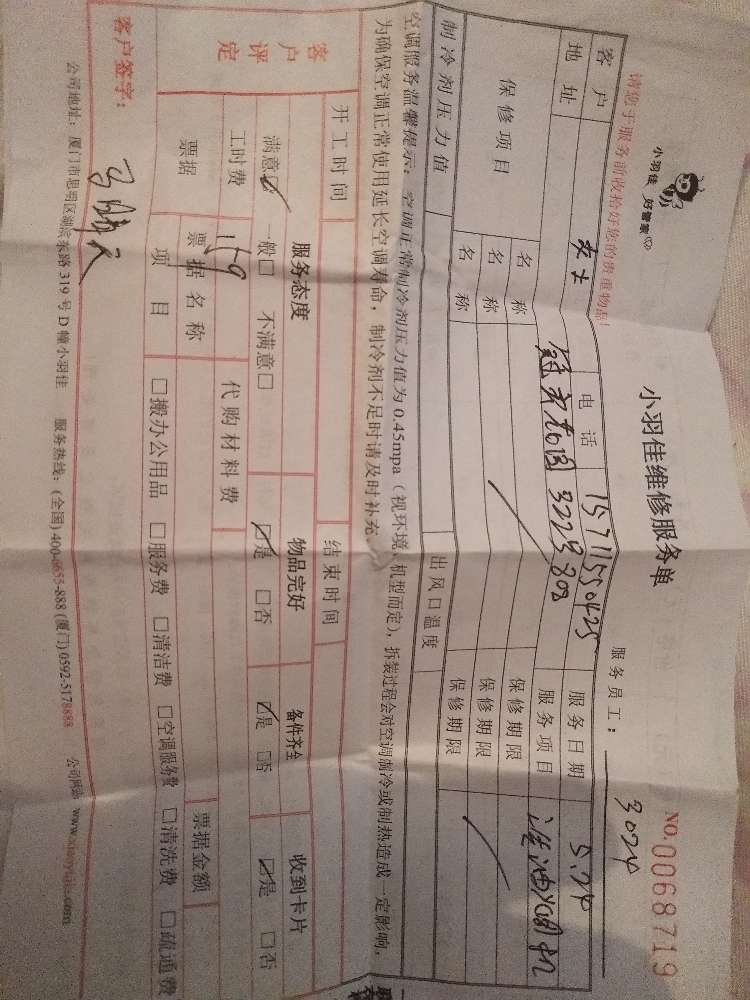 小羽佳 好管家
小羽佳维修服务单
NO.0068719
请您于服务前收拾好您的贵重物品!
服务员工: 3024
客户 女士 电话 15711550425 服务日期 5.24
地址 3223 802 服务项目 油烟机
保修项目 名称 保修期限
名称 保修期限
名称 保修期限
制冷剂压力值 出风口温度
空调服务温馨提示: 空调正常制冷剂压力值为0.45mpa(视环境、机型而定), 拆装过程会对空调制冷或制热造成一定影响,
为确保空调正常使用延长空调寿命, 制冷剂不足时请及时补充
开工时间 结束时间
客户评定 服务态度 物品完好 备件齐全 收到卡片
满意☑ 一般□ 不满意□ ☑是 □否 ☑是 □否 ☑是 □否
工时费 159 代购材料费
票据 票据名称 票据金额
项目 □搬办公用品 □服务费 □清洁费 □空调服务费 □清洗费 □疏通费
客户签字:
公司地址: 厦门市思明区湖滨东路319号D幢小羽佳 服务热线: (全国) 400-6655-888 (厦门) 0592-5178888 公司网站: www.xiaoyujia.com